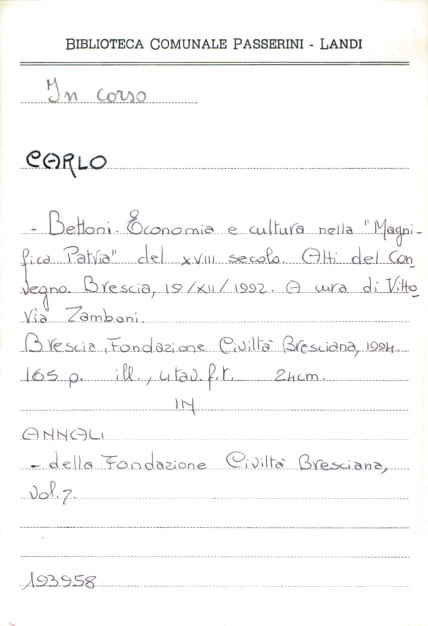 BIBLIOTECA COMUNALE PASSERINI - LANDI
In corso
CARLO
- Bettoni. Economia e cultura nella "Magni-
fica Patria" del XVIII secolo. Atti del Con
vegno. Brescia, 19/XII/1992. A cura di Vitto
ria Zamboni.
Brescia, Fondazione Civiltà Bresciana, 1994.
165 p. ill., 4 tav. f.t. 24cm.
IN
ANNALI
- della Fondazione Civiltà Bresciana,
vol. 7.
193958